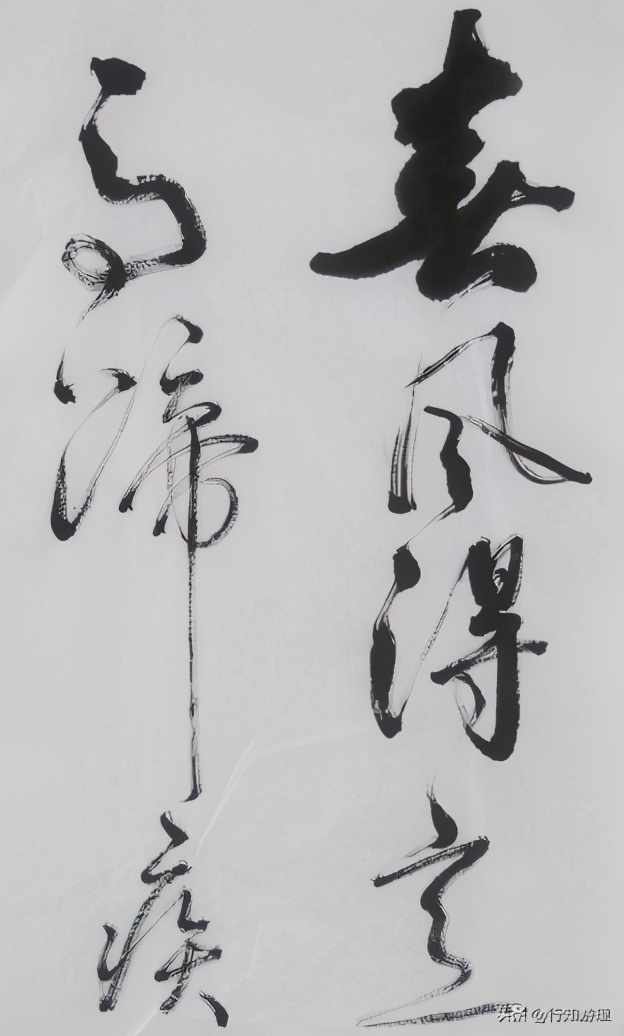 春风得意
马蹄疾
头条 @行知